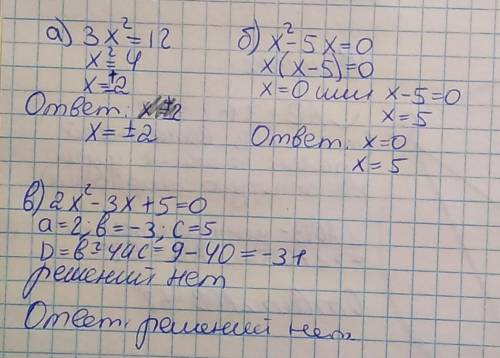 а) 3x²=12
x²=4
x=±2
Ответ:
x=±2
б) x²-5x=0
x(x-5)=0
x=0 или x-5=0
x=5
Ответ: x=0
x=5
в) 2x²-3x+5=0
a=2; b=-3; c=5
D=b²-4ac=9-40=-31
решений нет
Ответ: решений нет.